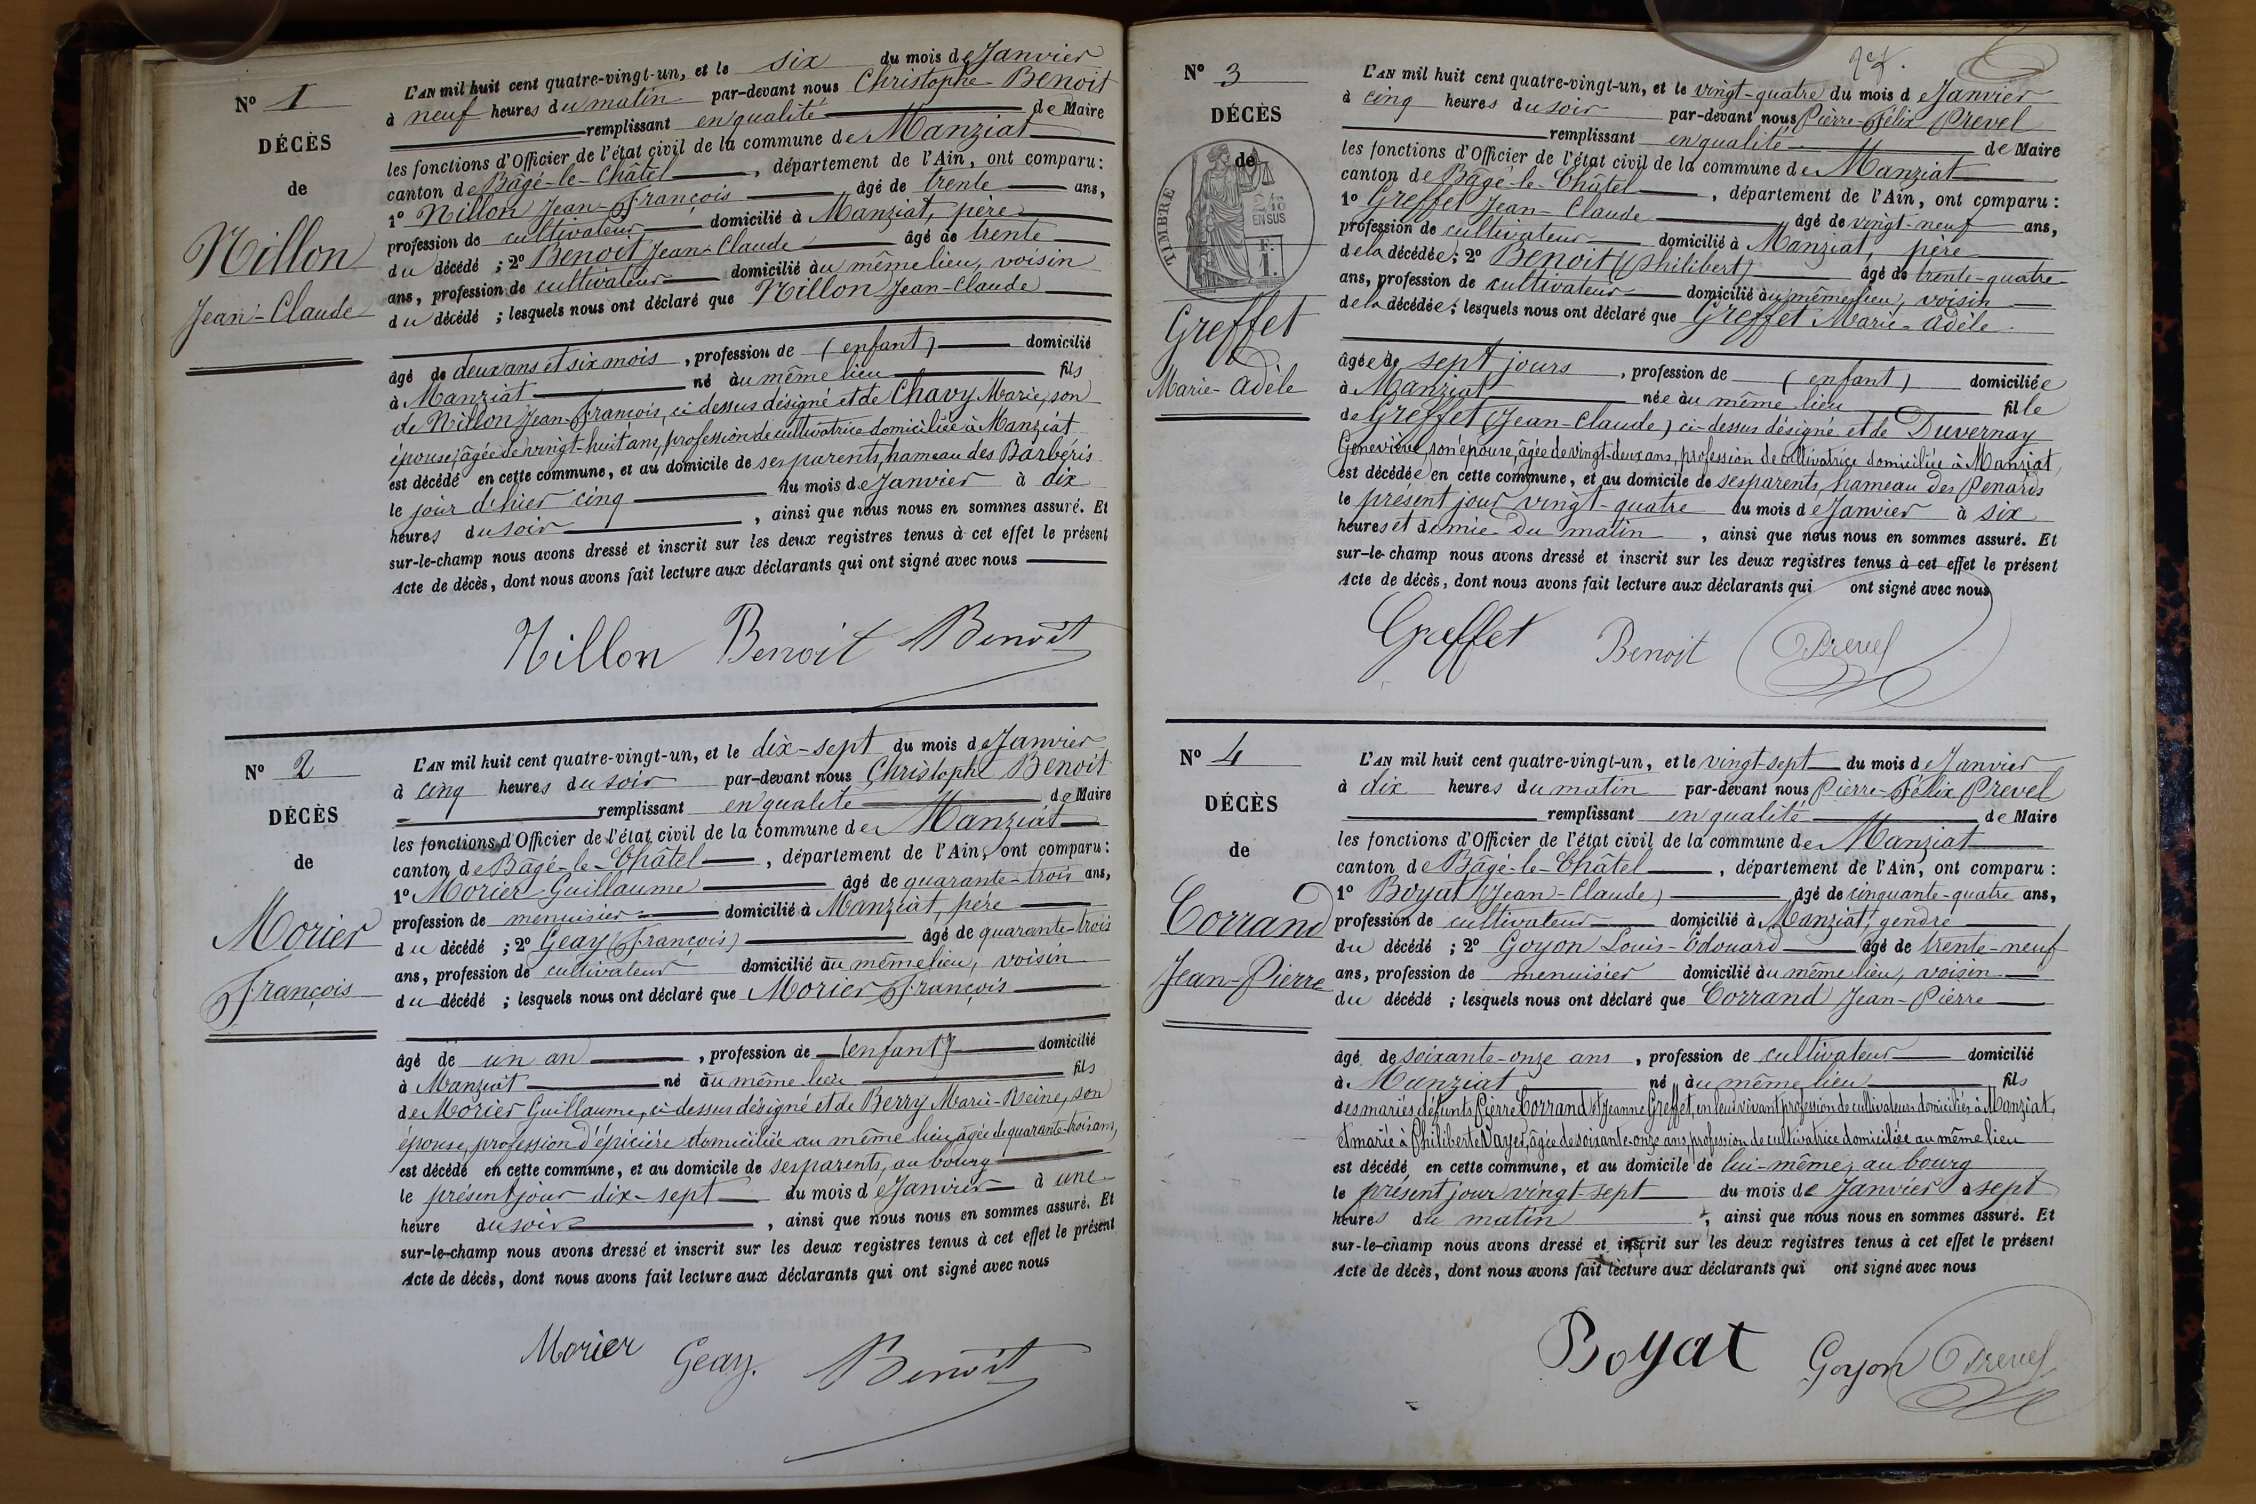 N° 1
DÉCÈS
de
Nillon
Jean-Claude
L'AN mil huit cent quatre-vingt-un, et le six du mois de Janvier
à neuf heures du matin par-devant nous Christophe Benoit
remplissant en qualité de Maire
les fonctions d'Officier de l'état civil de la commune de Manziat
canton de Bâgé-le-Châtel, département de l'Ain, ont comparu :
1° Nillon Jean-François âgé de trente ans,
profession de cultivateur domicilié à Manziat, père
du décédé ; 2° Benoit Jean-Claude âgé de trente
ans, profession de cultivateur domicilié au même lieu, voisin
du décédé ; lesquels nous ont déclaré que Nillon Jean-Claude
âgé de deux ans et six mois, profession de (enfant) domicilié
à Manziat né au même lieu fils
de Nillon Jean-François, ci-dessus désigné et de Chavy Marie, son
épouse, âgée de vingt-huit ans, profession de cultivatrice domiciliée à Manziat
est décédé en cette commune, et au domicile de ses parents, hameau des Barbéris
le jour d'hier cinq du mois de Janvier à dix
heures du soir, ainsi que nous nous en sommes assuré. Et
sur-le-champ nous avons dressé et inscrit sur les deux registres tenus à cet effet le présent
Acte de décès, dont nous avons fait lecture aux déclarants qui ont signé avec nous
Nillon Benoit Benoit
N° 2
DÉCÈS
de
Morier
François
L'AN mil huit cent quatre-vingt-un, et le dix-sept du mois de Janvier
à cinq heures du soir par-devant nous Christophe Benoit
remplissant en qualité de Maire
les fonctions d'Officier de l'état civil de la commune de Manziat
canton de Bâgé-le-Châtel, département de l'Ain, ont comparu :
1° Morier Guillaume âgé de quarante-trois ans,
profession de menuisier domicilié à Manziat, père
du décédé ; 2° Geay (François) âgé de quarante-trois
ans, profession de cultivateur domicilié au même lieu, voisin
du décédé ; lesquels nous ont déclaré que Morier François
âgé de un an, profession de (enfant) domicilié
à Manziat né au même lieu fils
de Morier Guillaume, ci-dessus désigné et de Berry Marie-Reine, son
épouse, profession d'épicière domiciliée au même lieu, âgée de quarante-trois ans,
est décédé en cette commune, et au domicile de ses parents, au bourg
le présent jour dix-sept du mois de Janvier à une
heure du soir, ainsi que nous nous en sommes assuré. Et
sur-le-champ nous avons dressé et inscrit sur les deux registres tenus à cet effet le présent
Acte de décès, dont nous avons fait lecture aux déclarants qui ont signé avec nous
Morier Geay. Benoit
N° 3
DÉCÈS
de
TIMBRE
2/10
EN SUS
Greffet
Marie-Adèle
L'AN mil huit cent quatre-vingt-un, et le vingt-quatre du mois de Janvier
à cinq heures du soir par-devant nous Pierre-Félix Prevel
remplissant en qualité de Maire
les fonctions d'Officier de l'état civil de la commune de Manziat
canton de Bâgé-le-Châtel, département de l'Ain, ont comparu :
1° Greffet Jean-Claude âgé de vingt-neuf ans,
profession de cultivateur domicilié à Manziat, père
de la décédée ; 2° Benoit (Philibert) âgé de trente-quatre
ans, profession de cultivateur domicilié au même lieu, voisin
de la décédée ; lesquels nous ont déclaré que Greffet Marie-Adèle.
âgée de sept jours, profession de (enfant) domiciliée
à Manziat née au même lieu fille
de Greffet (Jean-Claude) ci-dessus désigné et de Duvernay
Geneviève, son épouse, âgée de vingt-deux ans, profession de cultivatrice domiciliée à Manziat,
est décédée en cette commune, et au domicile de ses parents, hameau des Penards
le présent jour vingt-quatre du mois de Janvier à six
heures et demie du matin, ainsi que nous nous en sommes assuré. Et
sur-le-champ nous avons dressé et inscrit sur les deux registres tenus à cet effet le présent
Acte de décès, dont nous avons fait lecture aux déclarants qui ont signé avec nous
Greffet Benoit Prevel
N° 4
DÉCÈS
de
Corrand
Jean-Pierre
L'AN mil huit cent quatre-vingt-un, et le vingt-sept du mois de Janvier
à dix heures du matin par-devant nous Pierre-Félix Prevel
remplissant en qualité de Maire
les fonctions d'Officier de l'état civil de la commune de Manziat
canton de Bâgé-le-Châtel, département de l'Ain, ont comparu :
1° Boyat (Jean-Claude) âgé de cinquante-quatre ans,
profession de cultivateur domicilié à Manziat, gendre
du décédé ; 2° Goyon Louis-Edouard âgé de trente-neuf
ans, profession de menuisier domicilié au même lieu, voisin
du décédé ; lesquels nous ont déclaré que Corrand Jean-Pierre
âgé de soixante-onze ans, profession de cultivateur domicilié
à Manziat né au même lieu fils
des mariés défunts Pierre Corrand et Jeanne Greffet, en leur vivant profession de cultivateurs domiciliés à Manziat,
et marié à Philiberte Vayer, âgée de soixante-onze ans, profession de cultivatrice domiciliée au même lieu
est décédé en cette commune, et au domicile de lui-même, au bourg
le présent jour vingt-sept du mois de Janvier à sept
heures du matin, ainsi que nous nous en sommes assuré. Et
sur-le-champ nous avons dressé et inscrit sur les deux registres tenus à cet effet le présent
Acte de décès, dont nous avons fait lecture aux déclarants qui ont signé avec nous
Boyat Goyon Prevel